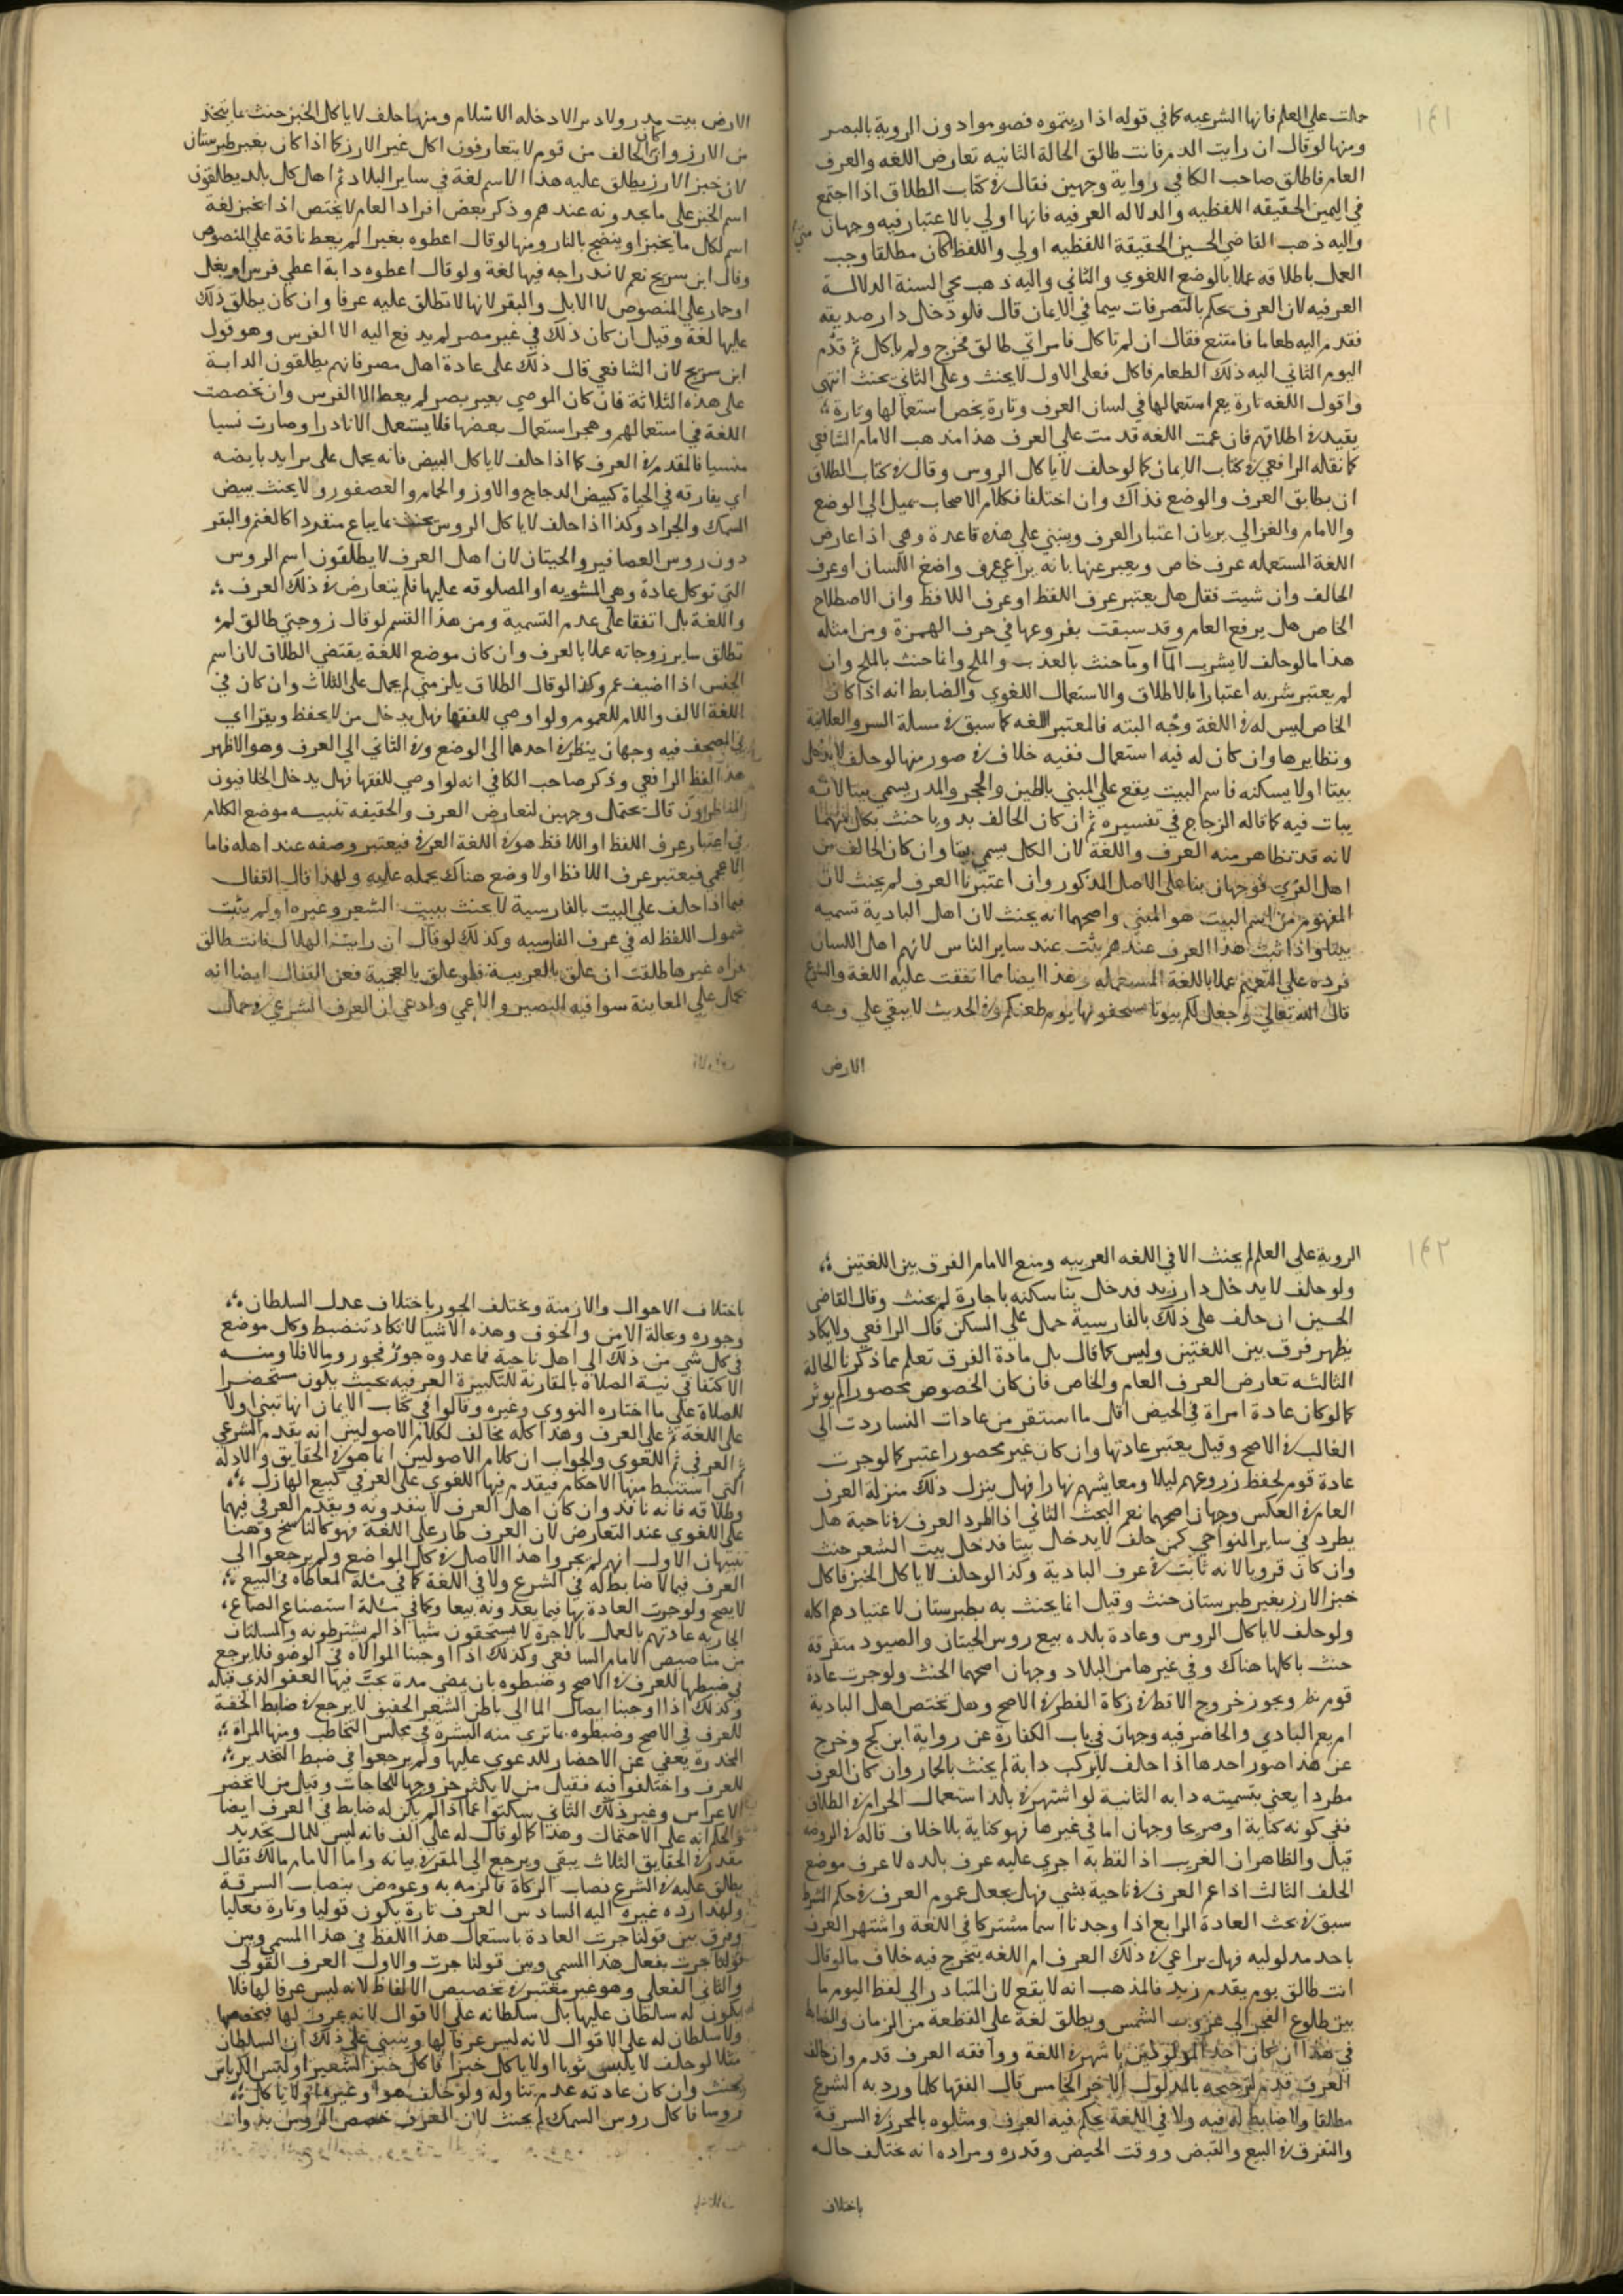 ١٤١
حملت علي العلم فانها الشرعيه كما في قوله اذا رايتموه فصوموا دون الروية بالبصر
ومنها لو قال ان رايت الدم فانت طالق الحالة الثانيه تعارض اللغه والعرف
العام فاطلق صاحب الكافي رواية وجهين فقال في كتاب الطلاق اذا اجتمع
في اليمين الحقيقه اللفظيه والدلاله العرفيه فانها اولي بالاعتبار فيه وجهان
واليه ذهب القاضي الحسين الحقيقة اللفظيه اولي واللفظ اذا كان مطلقا وجب
العمل باطلاقه عملا بالوضع اللغوي والثاني واليه ذهب محي السنة الدلالة
العرفيه لان العرف يحكم بالتصرفات سيما في الايمان قال فلو دخل دار صديقه
فقدم اليه طعاما فامتنع فقال ان لم تاكل فامراتي طالق فخرج ولم ياكل ثم قدم
اليوم الثاني اليه ذلك الطعام فاكل فعلي الاول لا يحنث وعلي الثاني يحنث انتهي
واقول اللغه تارة يعم استعمالها في لسان العرف وتارة يخص استعمالها وتارة
يقيد في اطلاقهم فان عمت اللغه قدمت علي العرف هذا مذهب الامام الشافعي
كما نقله الرافعي في كتاب الايمان كما لو حلف لا ياكل الروس وقال في كتاب الطلاق
ان يطابق العرف والوضع فذاك وان اختلفا فكلام الاصحاب يميل الي الوضع
والامام والغزالي يريان اعتبار العرف وينبني علي هذه قاعدة وهي اذا عارض
اللغة المستعمله عرف خاص ويعبر عنها بانه يراعي عرف واضع اللسان او عرف
الحالف وان شيت فقل هل يعتبر عرف اللفظ او عرف اللافظ وان الاصطلاح
الخاص هل يرفع العام وقد سبقت بفروعها في حرف الهمزة ومن امثله
هذا ما لو حلف لا يشرب المآ او مآ حنث بالعذب والملح وانما حنث بالملح وان
لم يعتبر شربه اعتبارا بالاطلاق والاستعمال اللغوي والضابط انه اذا كان
الخاص ليس له في اللغة وجه البته فالمعتبر اللغه كما سبق في مسلة السر والعلانية
ونظايرها وان كان له فيه استعمال ففيه خلاف في صور منها لو حلف لا يدخل
بيتا اولا يسكنه فاسم البيت يقع علي المبني بالطين والحجر والمدر يسمي بيتا لانه
يبات فيه كما قاله الزجاج في تفسيره ثم ان كان الحالف بدويا حنث بكل منهما
لانه قد تظاهر منه العرف واللغة لان الكل يسمي بيتا وان كان الحالف من
اهل القري فوجهان بنا علي الاصل المذكور وان اعتبرنا العرف لم يحنث لان
المفهوم من اسم البيت هو المبني واصحهما انه يحنث لان اهل البادية تسميه
بيتا واذا ثبت هذا العرف عندهم يثبت عند ساير الناس لانهم اهل اللسان
فرده علي التعميم عملا باللغة المستعمله وهذا ايضا مما اتفقت عليه اللغة والشرع
قال الله تعالي وجعل لكم بيوتا تستخفونها يوم ظعنكم وفي الحديث لا يبقي علي وجه
الارض
الارض بيت مدر ولا وبر الا دخله الاسلام ومنها حلف لا ياكل الخبز حنث بما يتخذ
من الارز وان كان الحالف من قوم لا يتعارفون اكل غير الارز كما اذا كان بغير طبرستان
لان خبز الارز يطلق عليه هذا الاسم لغة في ساير البلاد ثم اهل كل بلد يطلقون
اسم الخبز علي ما يجدونه عندهم وذكر بعض افراد العام لا يختص اذا الخبز لغة
اسم لكل ما يخبز او ينضج بالنار ومنها لو قال اعطوه بعيرا لم يعط ناقة علي المنصوص
وقال ابن سريج نعم لاندراجه فيها لغة ولو قال اعطوه دابة اعطي فرس او بغل
او حمار علي المنصوص لا الابل والبقر لانها لا تطلق عليه عرفا وان كان يطلق ذلك
عليها لغة وقيل ان كان ذلك في غير مصر لم يدفع اليه الا الفرس وهو قول
ابن سريج لان الشافعي قال ذلك علي عادة اهل مصر فانهم يطلقون الدابة
علي هذه الثلاثة فان كان الموصي بغير مصر لم يعط الا الفرس وان تخصصت
اللغة في استعمالهم وهجر استعمال بعضها فلا يستعمل الا نادرا وصارت نسيا
منسيا فالمقدم في العرف كما اذا حلف لا ياكل البيض فانه يحمل علي ما يزايد بايضه
اي يفارقه في الحياة كبيض الدجاج والاوز والحمام والعصفور ولا يحنث ببيض
السمك والجراد وكذا اذا حلف لا ياكل الروس يحنث بما يباع منفردا كالغنم والبقر
دون روس العصافير والحيتان لان اهل العرف لا يطلقون اسم الروس
التي توكل عادة وهي المشويه او المصلوقه عليها فلم يتعارض في ذلك العرف
واللغة بل اتفقا علي عدم التسمية ومن هذا القسم لو قال زوجتي طالق لم
تطلق ساير زوجاته عملا بالعرف وان كان موضع اللغة يقتضي الطلاق لان اسم
الجنس اذا اضيف عم وكذا لو قال الطلاق يلزمني لم يحمل علي الثلاث وان كان في
اللغة الالف واللام للعموم ولو اوصي للفقها فهل يدخل من لا يحفظ ويقرا اي
في المصحف فيه وجهان ينظر في احدهما الي الوضع وفي الثاني الي العرف وهو الاظهر
هذا لفظ الرافعي وذكر صاحب الكافي انه لو اوصي للفقها فهل يدخل الخلافيون
المناظرون قال يحتمل وجهين لتعارض العرف والحقيقه تنبيه موضع الكلام
في اعتبار عرف اللفظ او اللافظ هو في اللغة العربي فيعتبر وصفه عند اهله فاما
الاعجمي فيعتبر عرف اللافظ اولا وضع هناك يحمله عليه ولهذا قال القفال
فيما اذا حلف علي البيت بالفارسية لا يحنث ببيت الشعر وغيره اولم يثبت
شمول اللفظ له في عرف الفارسيه وكذلك لو قال ان رايت الهلال فانت طالق
فراه غيرها طلقت ان علق بالعربية فلو علق بالعجمية فعن القفال ايضا انه
يحمل علي المعاينة سوا فيه البصير والاعمي وادعي ان العرف الشرعي في حمل
١٤٢
الروية علي العلم لم يحنث الا في اللغه العربيه ومنع الامام الفرق بين اللغتين
ولو حلف لا يدخل دار زيد فدخل بنا سكنه باجارة لم يحنث وقال القاضي
الحسين ان حلف علي ذلك بالفارسية حمل علي السكن قال الرافعي ولا يكاد
يظهر فرق بين اللغتين وليس كما قال بل مادة الفرق تعلم مما ذكرنا الحالة
الثالثه تعارض العرف العام والخاص فان كان الخصوص محصورا لم يوثر
كما لو كان عادة امراة في الحيض اقل ما استقر من عادات النسا ردت الي
الغالب في الاصح وقيل يعتبر عادتها وان كان غير محصور اعتبر كما لو جرت
عادة قوم بحفظ زروعهم ليلا ومعاشيهم نهارا فهل ينزل ذلك منزلة العرف
العام في العكس وجهان اصحهما نعم البحث الثاني اذا اطرد العرف في ناحية هل
يطرد في ساير النواحي كمن حلف لا يدخل بيتا فدخل بيت الشعر حنث
وان كان قرويا لانه ثابت في عرف البادية وكذا لو حلف لا ياكل الخبز فاكل
خبز الارز بغير طبرستان حنث وقيل انما يحنث به بطبرستان لاعتيادهم اكله
ولو حلف لا ياكل الروس وعادة بلده بيع روس الحيتان والصيود متفرقة
حنث باكلها هناك وفي غيرها من البلاد وجهان اصحهما الحنث ولو جرت عادة
قوم ويجوز خروج الاقط في زكاة الفطر في الاصح وهل يختص اهل البادية
ام يعم البادي والحاضر فيه وجهان في باب الكفارة عن رواية ابن كج وخرج
عن هذا صور احدها اذا حلف لا يركب دابة لم يحنث بالحمار وان كان العرف
مطردا يعني بتسميته دابه الثانية لو اشتهر في بلد استعمال الحرام في الطلاق
ففي كونه كناية او صريحا وجهان اما في غيرها فهو كناية بلا خلاف قاله في الروضه
قيل والظاهر ان الغريب اذا لفظ به اجري عليه عرف بلده لا عرف موضع
الحلف الثالث اذا عم العرف في ناحية بشي فهل يجعل عموم العرف في حكم الشرط
سبق في بحث العادة الرابع اذا وجدنا اسما مشتركا في اللغة واشتهر العرف
باحد مدلوليه فهل يراعي في ذلك العرف ام اللغه يتخرج فيه خلاف ما لو قال
انت طالق يوم يقدم زيد فالمذهب انه لا يقع لان المتبادر الي لفظ اليوم ما
بين طلوع الفجر الي غروب الشمس ويطلق لغة علي القطعة من الزمان والضابط
في هذا ان كان احد المدلولين اشهر في اللغة ووافقه العرف قدم وان خالف
العرف قدم لترجيحه بالمدلول الاخر الخامس قال الفقها كلما ورد به الشرع
مطلقا ولا ضابط له فيه ولا في اللغة يحكم فيه العرف ومثلوه بالحرز في السرقة
والتفرق في البيع والقبض ووقت الحيض وقدره ومراده انه يختلف حاله
باختلاف
باختلاف الاحوال والازمنة ويختلف الجور باختلاف عدل السلطان
وجوره وبحالة الامن والخوف وهذه الاشيا لا تكاد تنضبط وكل موضع
في كل شي من ذلك الي اهل ناحية فما عدوه جوز فجوز وما لا فلا ومنه
الاكتفا في نية الصلاة بالمقارنة للتكبيرة العرفيه بحيث يكون مستحضرا
للصلاة علي ما اختاره النووي وغيره وقالوا في كتاب الايمان انها تبني اولا
علي اللغة ثم علي العرف وهذا كله مخالف لكلام الاصوليين انه يقدم الشرعي
ثم العرفي ثم اللغوي والجواب ان كلام الاصوليين انما هو في الحقايق والادلة
التي استنبط منها الاحكام فيقدم فيها اللغوي علي العرفي كبيع الهازل
وطلاقه فانه نافذ وان كان اهل العرف لا ينفذونه ويقدم العرفي فيها
علي اللغوي عند التعارض لان العرف طار علي اللغة فهو كالناسخ وهنا
تنبيهان الاول انهم لم يجروا هذا الاصل في كل المواضع ولم يرجعوا الي
العرف فيما لا ضابط له في الشرع ولا في اللغة كما في مسلة المعاطاه في البيع
لا يصح ولو جرت العادة بها فيما يعدونه بيعا وكما في مسلة استصناع الصناع
الجاريه عادتهم بالعمل بالاجرة لا يستحقون شيا اذا لم يشترطونه والمسلتان
من مناصيص الامام الشافعي وكذلك اذا اوجبنا الموالاه في الوضو فلا يرجع
في ضبطها للعرف في الاصح وضبطوه بان يمضي مدة يجف فيها العضو الذي قبله
وكذلك اذا اوجبنا ايصال الما الي باطن الشعر الخفيف لا يرجع في ضابط الخفة
للعرف في الاصح وضبطوه ما تري منه البشرة في مجلس التخاطب ومنها المراة
المخدرة يعفي عن الاحضار للدعوي عليها ولم يرجعوا في ضبط التخدير
للعرف واختلفوا فيه فقيل من لا يكثر خروجها للحاجات وقيل من لا تحضر
الاعراس وغير ذلك الثاني سكتوا عما اذا لم يكن له ضابط في العرف ايضا
والحكم انه علي الاحتمال وهذا كما لو قال له علي الف فانه ليس للمال تحديد
مقدر في الحقايق الثلاث يبقي ويرجع الي المقر في بيانه واما الامام مالك فقال
يطلق عليه في الشرع نصاب الزكاة فالزمه به وعوض بنصاب السرقة
ولهذا رده غيره اليه السادس العرف تارة يكون قوليا وتارة فعليا
وفرق بين قولنا جرت العادة باستعمال هذا اللفظ في هذا المسمي وبين
قولنا جرت بفعل هذا المسمي وبين قولنا جرت والاول العرف القولي
والثاني الفعلي وهو غير معتبر في تخصيص الالفاظ لانه ليس عرفا لها فلا
يكون له سلطان عليها بل سلطانه علي الاقوال لانه عرف لها فيخصها
ولا سلطان له علي الاقوال لانه ليس عرفا لها وينبني علي ذلك ان السلطان
مثلا لو حلف لا يلبس ثوبا اولا ياكل خبزا فاكل خبز الشعير او لبس الكرباس
يحنث وان كان عادته عدم تناوله ولو حلف هو او غيره لا ياكل
روسا فاكل روس السمك لم يحنث لان العرف خصص الروس